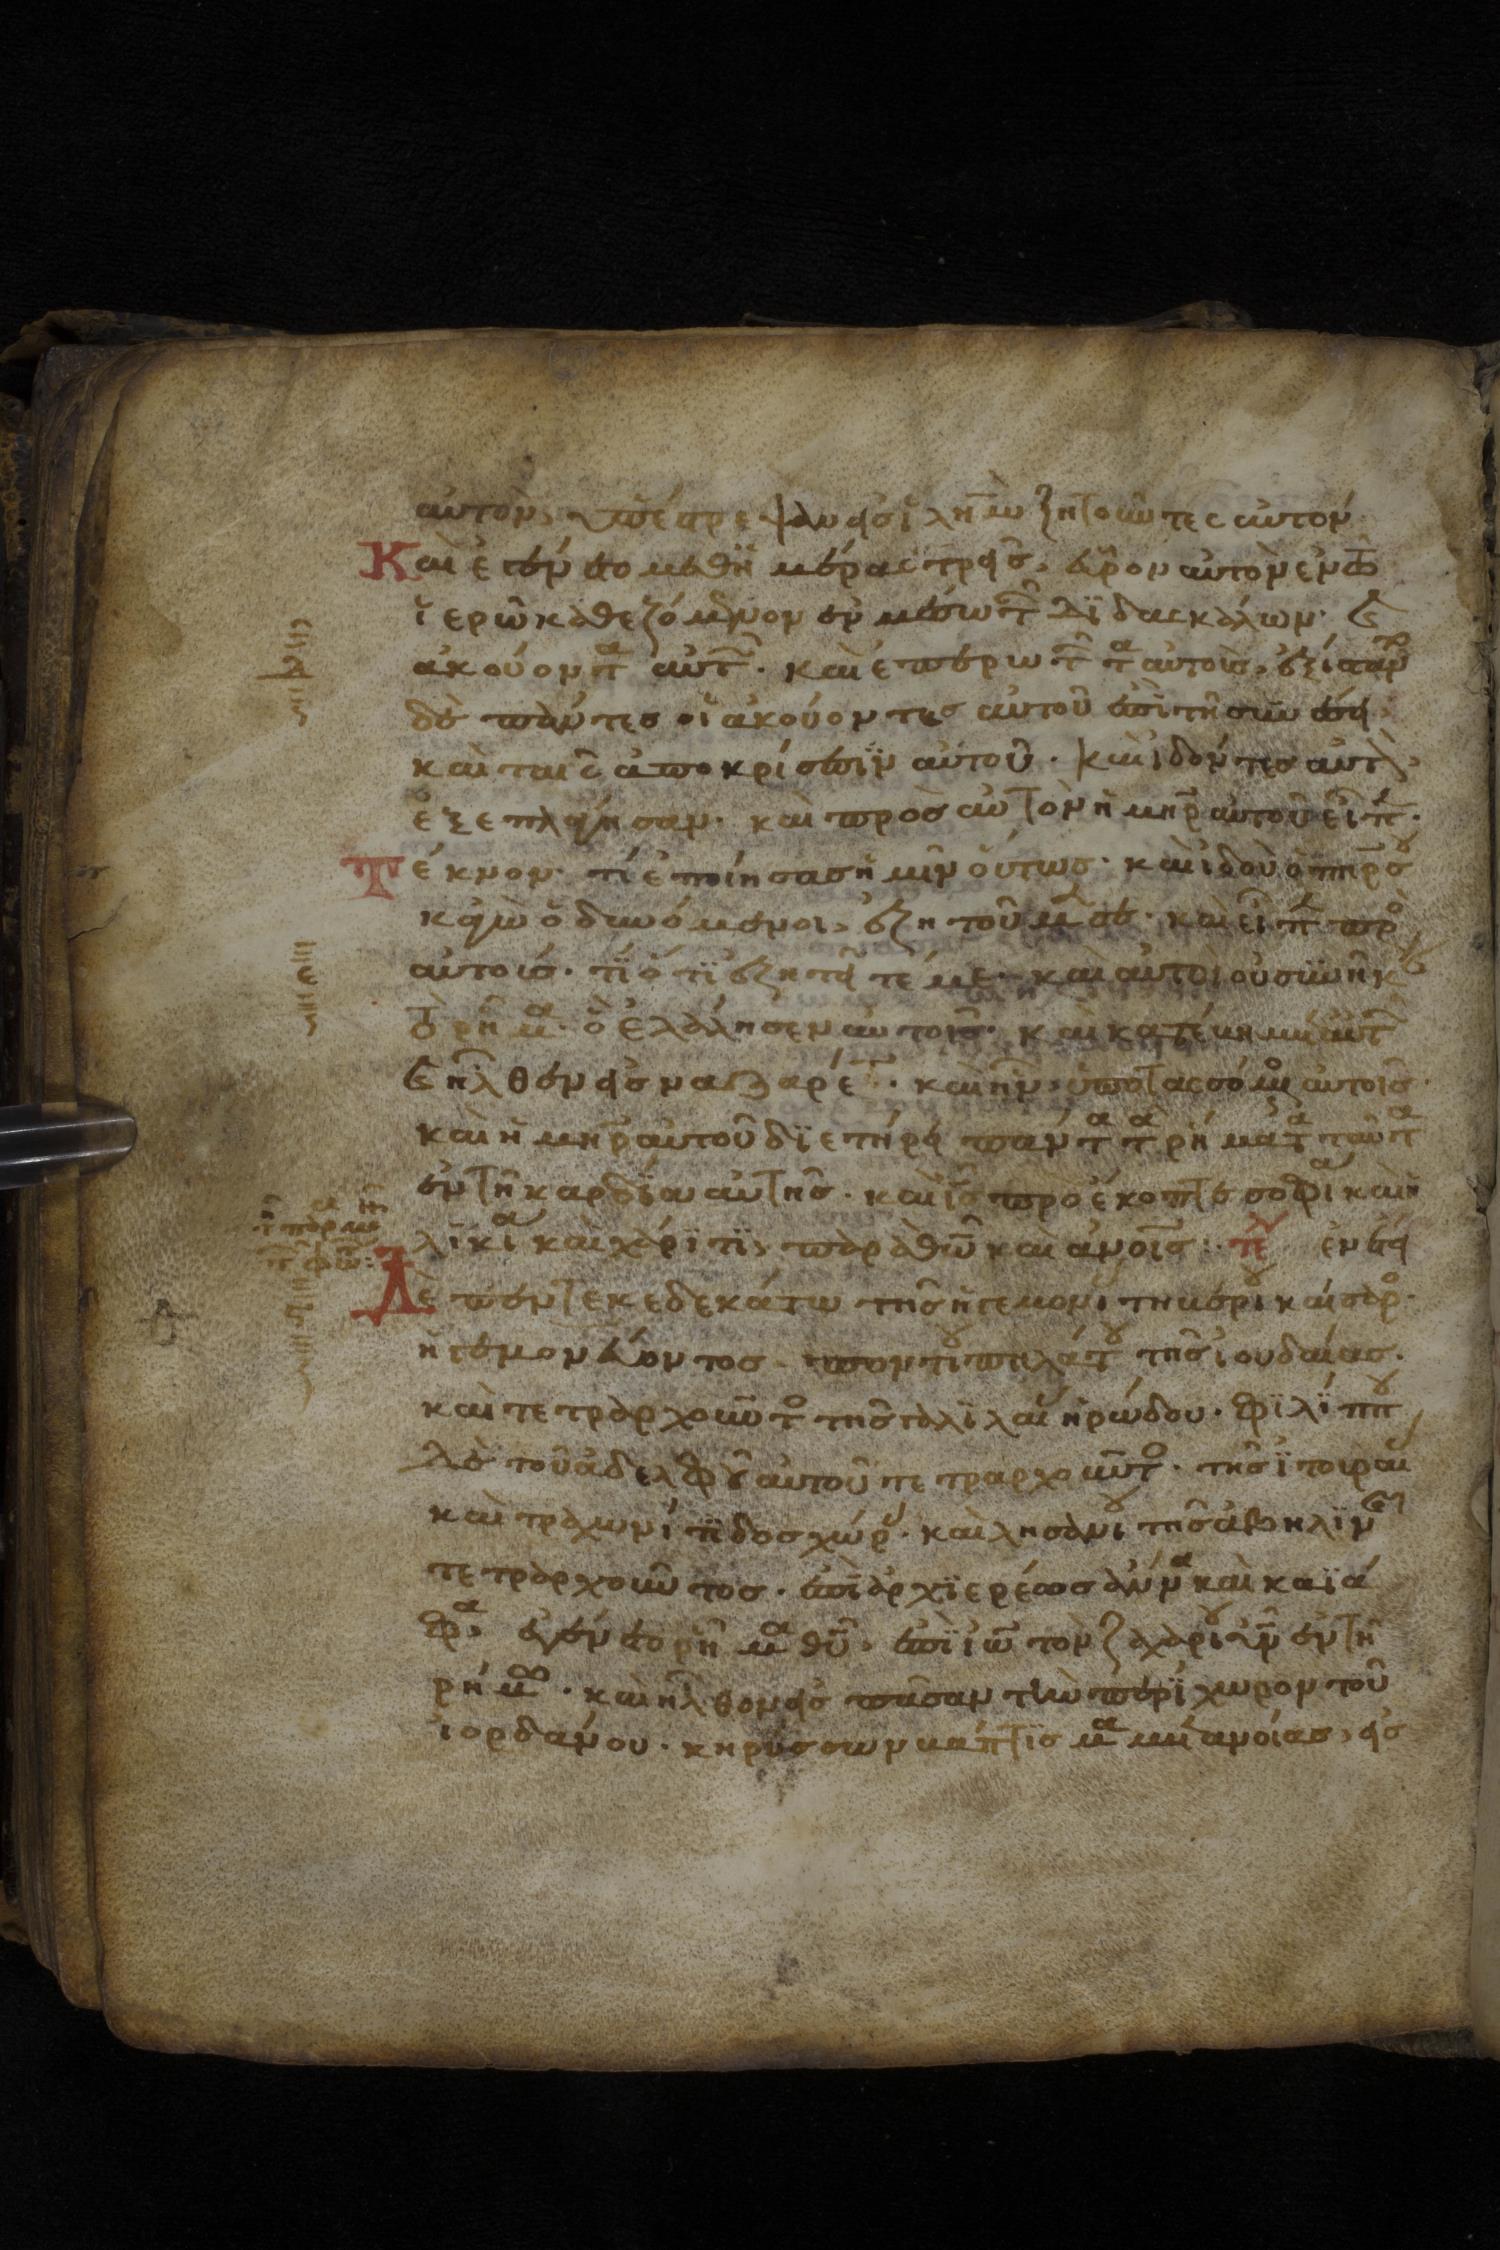 αὐτὸν, ὑπέστρεψαν εἰς ἰλημ ζητοῦντες αὐτόν
Καὶ ἐγένετο μεθ ἡμέρας τρεῖς, εὗρον αὐτὸν ἐν τῶ
ἱερῶ καθεζόμενον ἐν μέσω τῶν διδασκάλων· καὶ
ἀκούοντα αὐτῶν· καὶ ἐπερωτῶντα αὐτοὺς, ἐξίσταντο
δὲ πάντες οἱ ἀκούοντες αὐτοῦ ἐπὶ τῆ συνέσει
καὶ ταῖς ἀποκρίσεσϊν αὐτοῦ· καὶ ἰδόντες αὐτὸν,
ἐξεπλάγησαν· καὶ πρὸς αὐτὸν ἡ μηρ αὐτοῦ εἶπεν·
Τέκνον· τί ἐποίησας ἡμῖν οὕτως· καὶ ἰδοὺ ὁ πηρ σου
κἀγὼ ὀδυνόμενοι, ἐζητοῦμέν σε· καὶ εἶπεν πρὸς
αὐτοὺς· τΐ ὅτϊ ἐζητεῖτέ με·
καὶ αὐτοὶ οὐ συνῆκαν
τὸ ρῆμα· ὃ ἐλάλησεν αὐτοῖς· καὶ κατέβη μετ αὐτῶν
καὶ ἦλθεν εἰς ναζαρέτ· καὶ ἦν ὑποτασσόμενος αὐτοῖς·
καὶ ἡ μηρ αὐτοῦ δϊετήρει πάντα τὰ ρήματα ταῦτα
ἐν τῆ καρδΐα αὐτῆς· καὶ ις προέκοπτε σοφία καὶ ἡ
λϊκία καὶ χάρϊτϊ, παρὰ θω καὶ ἀνοις: τε ἐν ἔτει
Δὲ πέντε κε δεκάτω τῆς ἡγεμονίας τηβερίου καίσαρος·
ἡγεμονέυοντος ποντίου πιλάτου τῆς ἰουδαίας·
καὶ τετραρχοῦντος τῆς γαλϊλαίας ἡρώδου· φϊλΐππου
δὲ τοῦ ἀδελφοῦ αὐτοῦ τετραρχοῦντος· τῆς ϊτουραίας
καὶ τραχωνίτϊδος χώρας· καὶ λησανίου τῆς ἀβηλϊνῆς
τετραρχοῦντος· ἐπὶ ἀρχϊερέως ἄννα καὶ καϊά
φα, ἐγένετο ρῆμα θυ, ἐπϊ ιω τὸν ζαχαρίου υν ἐν τῆ
ἐρήμω· καὶ ἦλθεν εἰς πᾶσαν τὴν περΐχωρον τοῦ
ἰορδάνου· κηρύσσων βάπτϊσμα μετανοίας, εἰς